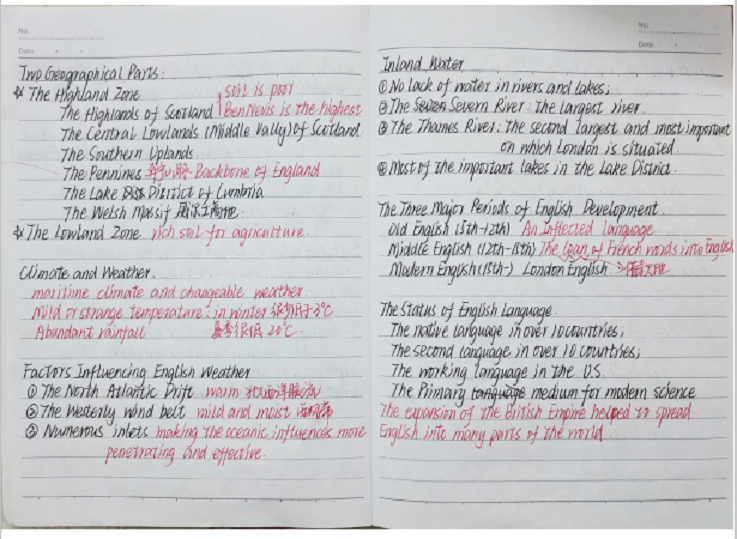 No.
Date
Two Geographical Parts:
☆ The Highland Zone soil is poor
The Highlands of Scotland Ben Nevis is the highest
The Central Lowlands (Middle Vally) of Scotland
The Southern Uplands
The Pennines Backbone of England
The Lake District of Cumbria
The Welsh Massif
☆ The Lowland Zone rich soil for agriculture
Climate and Weather.
maritime climate and changeable weather
Mild temperature: in winter 很少低于3°C
Abundant rainfall 夏季很少 20°C.
Factors Influencing English Weather
① The North Atlantic Drift warm 北大西洋暖流
② The Westerly wind belt mild and moist
③ Numerous inlets making the oceanic influences more
penetrating and effective.
No.
Date
Inland Water
① No lack of water in rivers and lakes;
② The Severn River: the largest river.
③ The Thames River: The second largest and most important
on which London is situated.
④ Most of the important lakes in the Lake District.
The Three Major Periods of English Development.
Old English (5th-12th) An Inflected language
Middle English (12th-15th) The loan of French words into English
Modern English (15th-) London English
The Status of English Language.
The native language in over 10 countries;
The second language in over 10 countries;
The working language in the U.S.
The Primary language medium for modern science
The expansion of the British Empire helped to spread
English into many parts of the world.